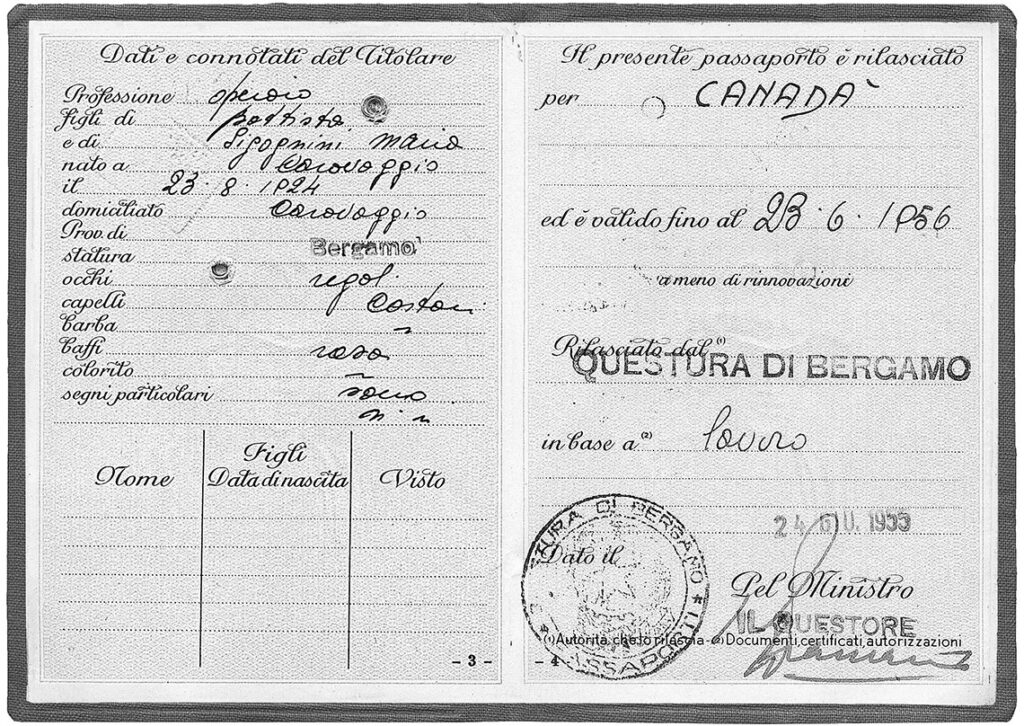 Dati e connotati del Titolare
Professione operaio
figli di Battista
e di Sigognini Maria
nato a Caravaggio
il 23·8·1924
domiciliato Caravaggio
Prov. di Bergamo
statura
occhi regol.
capelli Castani
barba "
baffi rasa
colorito
segni particolari sano
n. n
Figli
Nome Data di nascita Visto
- 3 -
Il presente passaporto è rilasciato
per CANADÀ
ed è valido fino al 23·6·1956
a meno di rinnovazione
Rilasciato dal (1)
QUESTURA DI BERGAMO
in base a (2) lavoro
24 GIU. 1955
QUESTURA DI BERGAMO
PASSAPORTI
Dato il
Pel Ministro
IL QUESTORE
(1) Autorità che lo rilascia - (2) Documenti, certificati, autorizzazioni
- 4